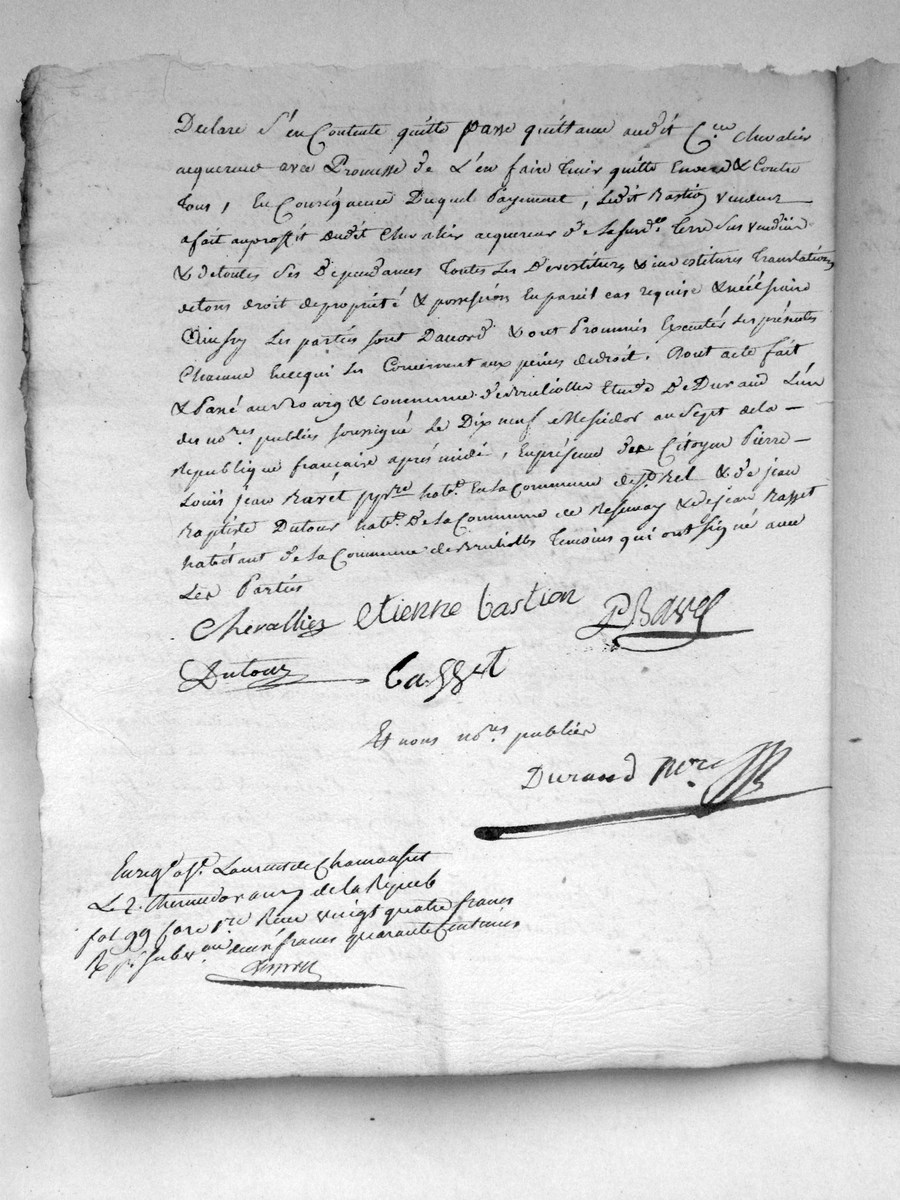 Declare S'en Contente quitte passe quittance audit C.en Chevalier
acquereur avec Promesse de L'en faire tenir quitte Envers & Contre
tous, En Consequence Duquel Payement, Ledit Bastion vendeur
a fait auproffit dudit Chevalier acquereur de La susd.te terre sus vendüe
& detoutes Ses Dependances toutes Les Devestitures & investitures translations
detous droit depropriété & possession En pareil cas requise & nécéssaire
Ainsy Les parties sont Daccord & ont Prommis Executer Les présentes
Chacune Encequi Les Concernent aux peines dedroit. Dont acte fait
& Passé au Bourg & commune de Brulliolles Etude De Durand L'un
des no.res publics soussigné Le Dix neuf Messidor an Sept dela
Republique française après midi, En présence des Citoyen Pierre
Louis jean Bavet hab.t En La Commune de & de jean
Baptiste Dutour hab.t De La Commune de & de jean Basset
habitant de La Commune de Brulliolles temoins qui ont Signé avec
Les Parties
Chevallier etienne bastion P Bavet
Dutour basset
Et nous no.res publics
Durand N.re
Enreg.é a S.t Laurent de Chamousset
Le 2. thermidor an 7 de la Repub
fol 99 Case 1.re Reçu vingt quatre francs
& p.r Subv.on deux francs quarante Centimes